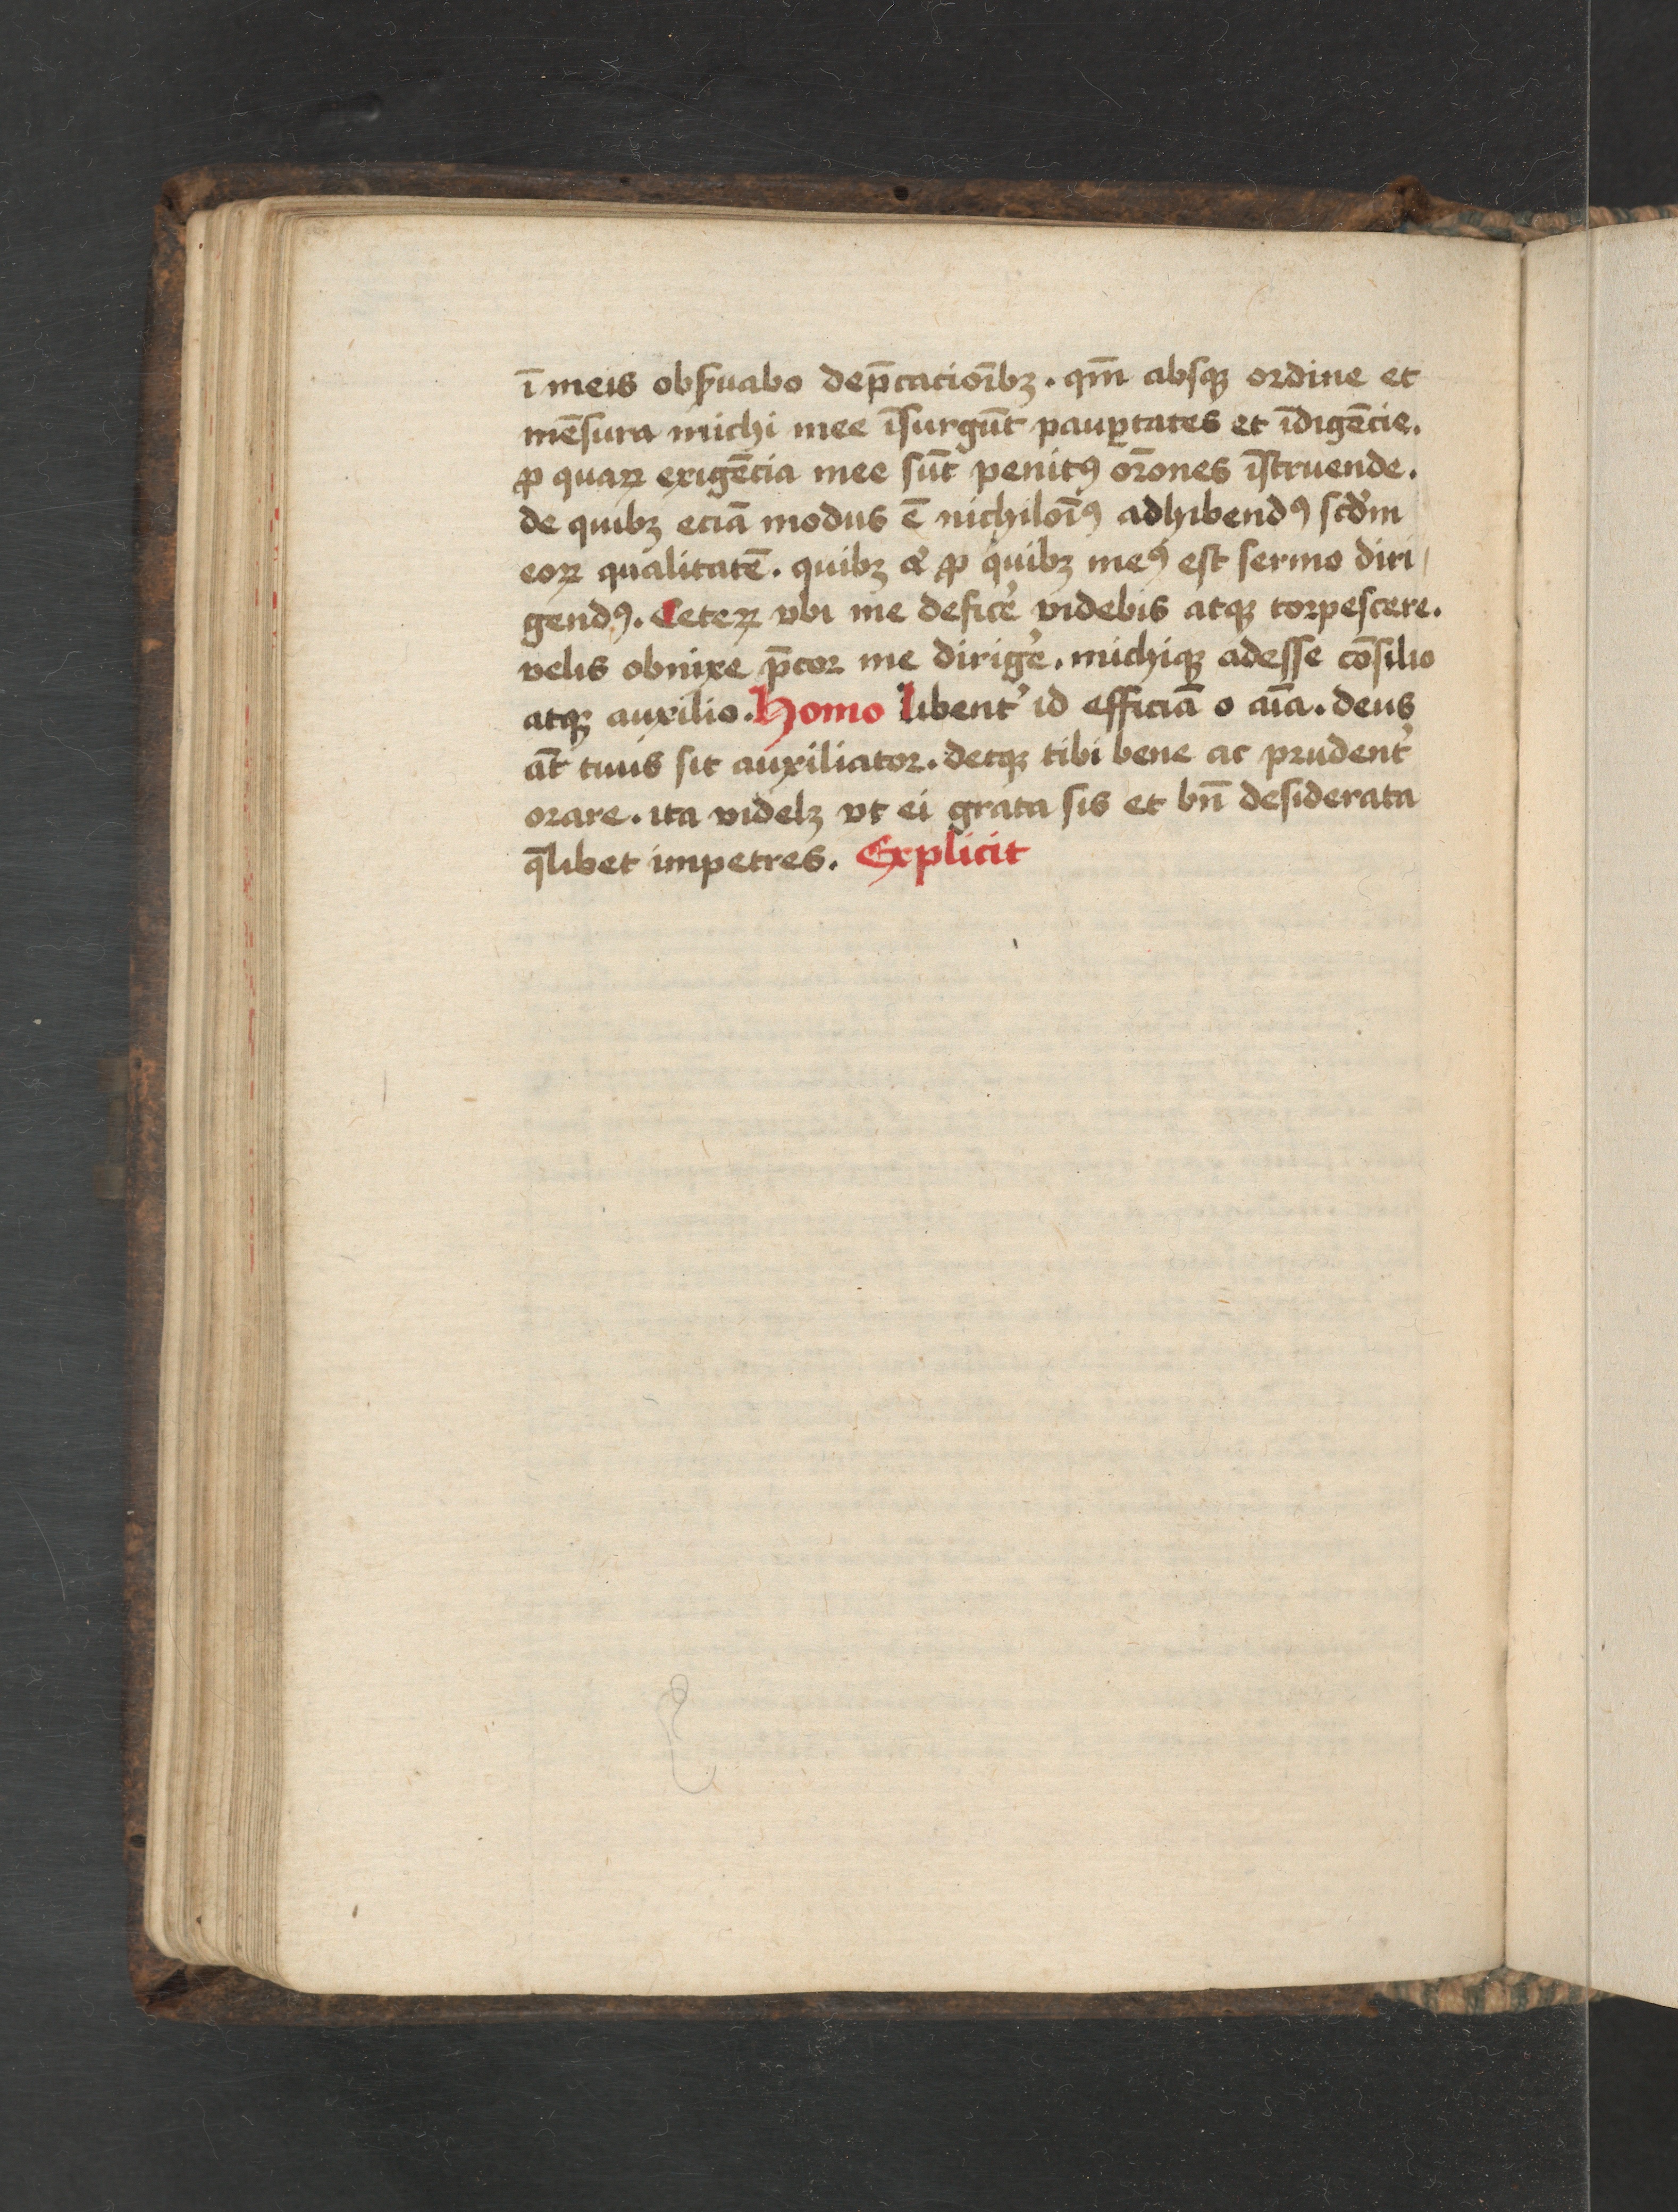 ī meis obẜuabo dep̄cacioībꝫ. qm̄ absqꝫ ordine et
mēsura michi mee īsurgūt paup̱tates et īdigēcie.
ꝓ quaꝝ exigēcia mee sūt penitꝰ orōnes īstruende.
de quibꝫ eciā modus ē nichiloīꝰ adhibendꝰ scd̓m
eoꝝ qualitatē. quibꝫ ⁊ ꝓ quibꝫ meꝰ est sermo diri/
gendꝰ. Ceteꝝ vbi me defice̓ videbis atqꝫ torpescere.
velis obnixe p̄cor me dirige̓. michiqꝫ adesse cōsilio
atqꝫ auxilio. Homo libent̓ id efficiā o aīa. deus
aūt tuus sit auxiliator. detqꝫ tibi bene ac prudent̓
orare. ita videlꝫ vt ei grata sis et bn̄ desiderata
q̄libet impetres. Explicit